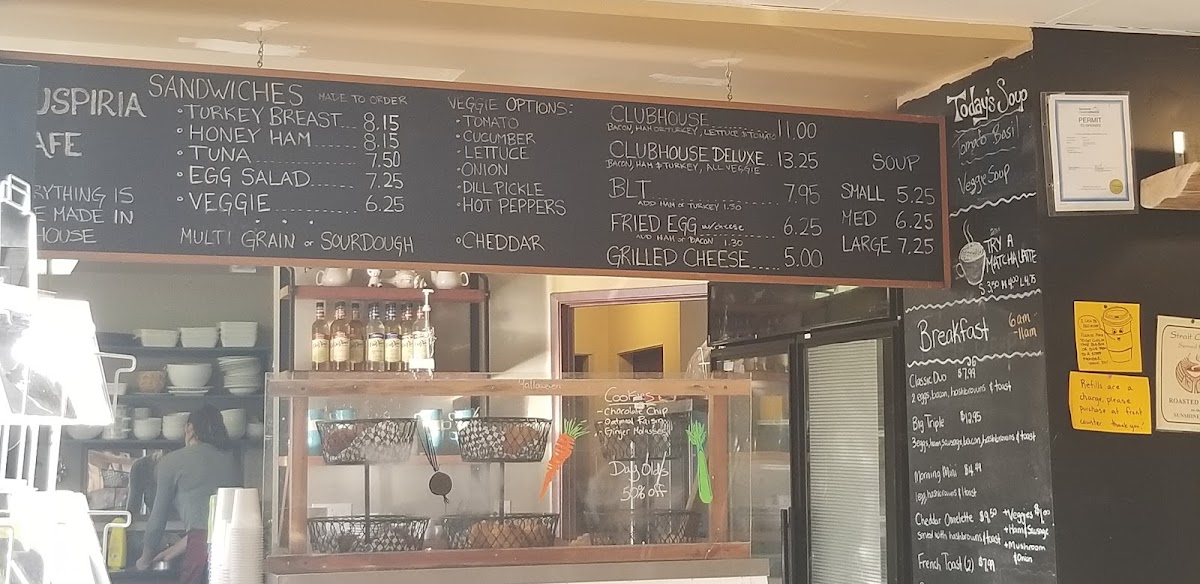 USPIRIA
AFE
RYTHING IS
E MADE IN
HOUSE
SANDWICHES MADE TO ORDER
• TURKEY BREAST... 8.15
• HONEY HAM........ 8.15
• TUNA................ 7.50
• EGG SALAD....... 7.25
• VEGGIE............ 6.25
MULTI GRAIN or SOURDOUGH
VEGGIE OPTIONS:
• TOMATO
• CUCUMBER
• LETTUCE
• ONION
• DILL PICKLE
• HOT PEPPERS
• CHEDDAR
CLUBHOUSE 11.00
BACON, HAM OR TURKEY, LETTUCE & TOMATO
CLUBHOUSE DELUXE 13.25
BACON, HAM & TURKEY, ALL VEGGIE
BLT 7.95
ADD HAM or TURKEY 1.50
FRIED EGG w/CHEESE 6.25
ADD HAM or BACON 1.30
GRILLED CHEESE..... 5.00
SOUP
SMALL 5.25
MED 6.25
LARGE 7.25
Today's Soup
Tomato Basil
Veggie Soup
TRY A
MATCHA LATTE
S 3.50 M 4.00 L 4.75
Breakfast 6am
-11am
Classic Duo $7.99
2 eggs, bacon, hashbrowns & toast
Big Triple $12.95
3 eggs, ham, sausage, bacon, hashbrowns & toast
Morning Mini $4.99
1 egg, hashbrowns & toast
Cheddar Omelette $9.50 + Veggies $1.00
Served with hashbrowns & toast + Ham/Sausage
+ Mushroom
& Onion
French Toast (2) $7.99
PERMIT
TO OPERATE
Refills are a
charge, please
purchase at front
counter thank you!
ROASTED
Halloween
Cookies
- Chocolate Chip
- Oatmeal Raisin
- Ginger Molasses
Day Olds
50% off